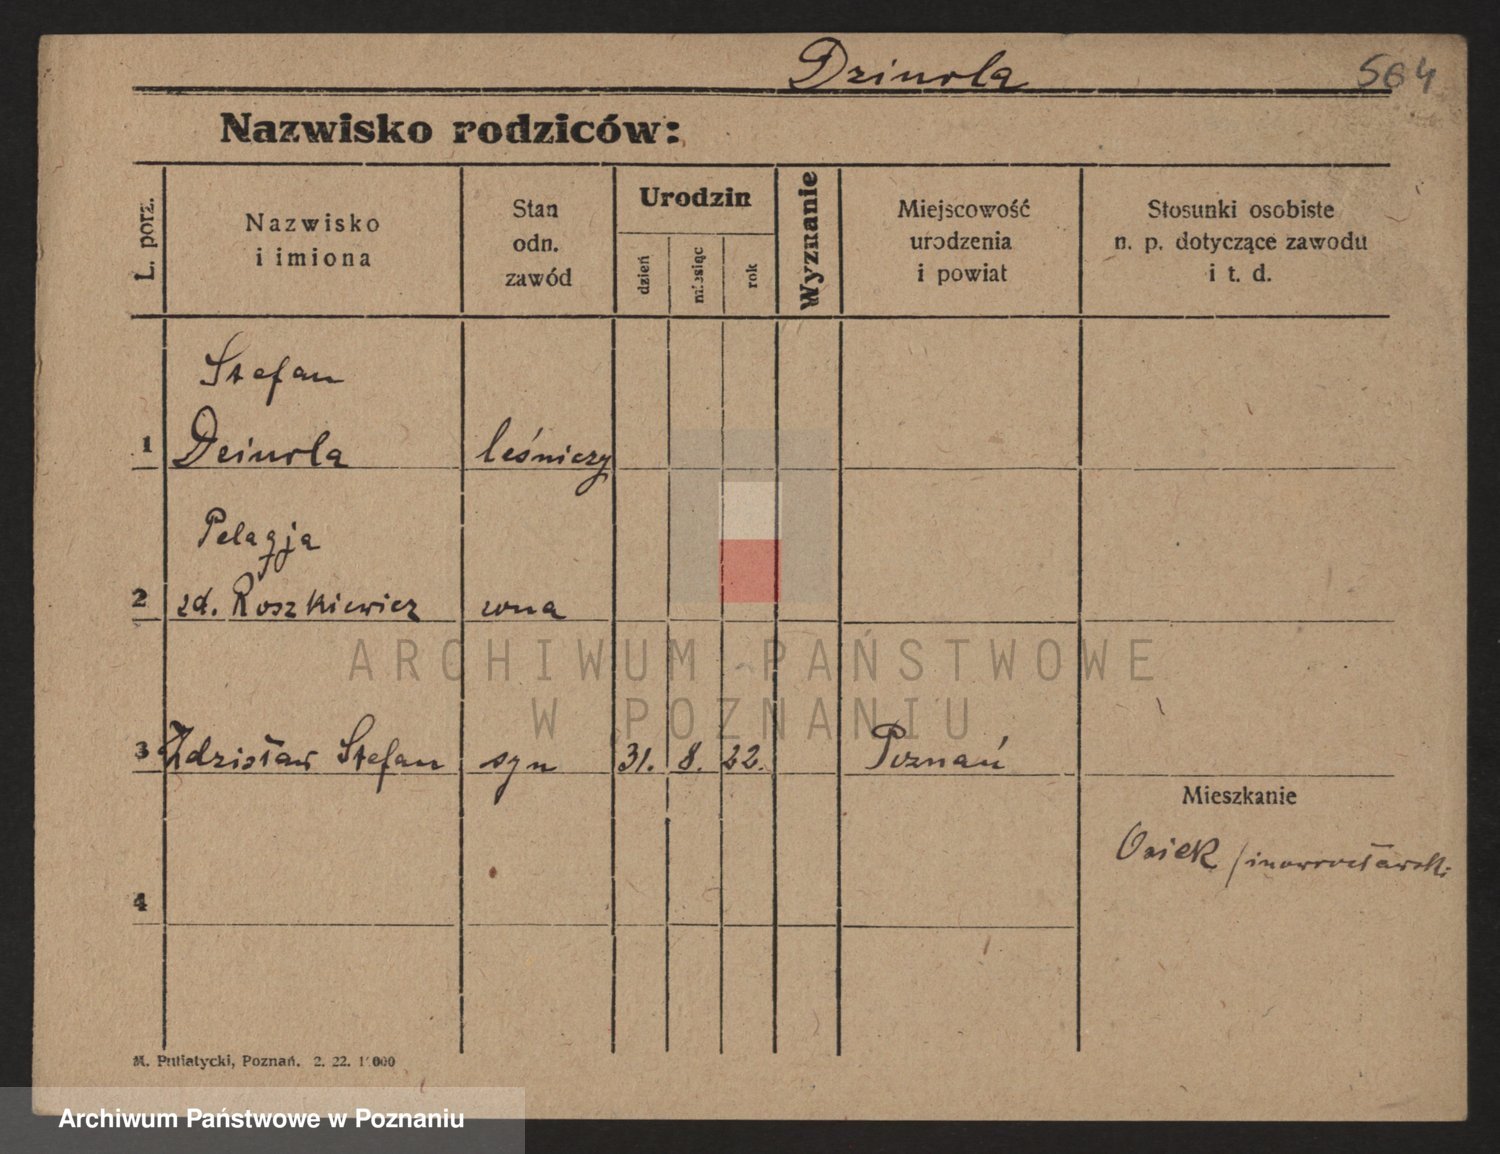 Dziurla 564
Nazwisko rodziców:
L. porz.
Nazwisko
i imiona
Stan
odn.
zawód
Urodzin
dzień
miesiąc
rok
Wyznanie
Miejscowość
urodzenia
i powiat
Stosunki osobiste
n. p. dotyczące zawodu
i t. d.
Stefan
1 Dziurla leśniczy
Pelagja
2 zd. Roszkiewicz żona
3 Zdzisław Stefan syn 31. 8. 22. Poznań
Mieszkanie
Osiek /inowrocławski
4
M. Putiatycki, Poznań. 2. 22.
ARCHIWUM PAŃSTWOWE
W POZNANIU
Archiwum Państwowe w Poznaniu